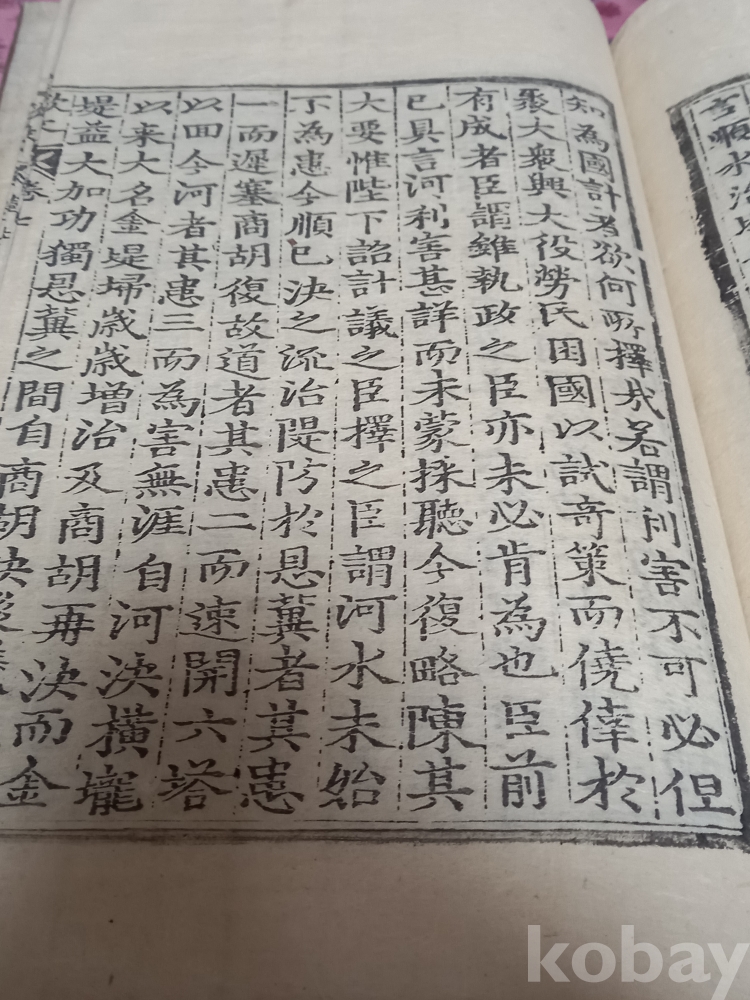 順水治
知為國計者欲何所擇哉若謂利害不可必但
聚大衆興大役勞民困國以試奇策而僥倖於
有成者臣謂雖執政之臣亦未必肯為也臣前
已具言河利害甚詳而未蒙採聽今復略陳其
大要惟陛下詔計議之臣擇之臣謂河水未始
不為患今順已決之流治隄防於恩冀者其患
一而遲塞商胡復故道者其患二而速開六塔
以回今河者其患三而為害無涯自河決橫壠
以来大名金堤埽歳歳增治及商胡再決而金
堤益大加功獨恩冀之間自商胡決後
kobay